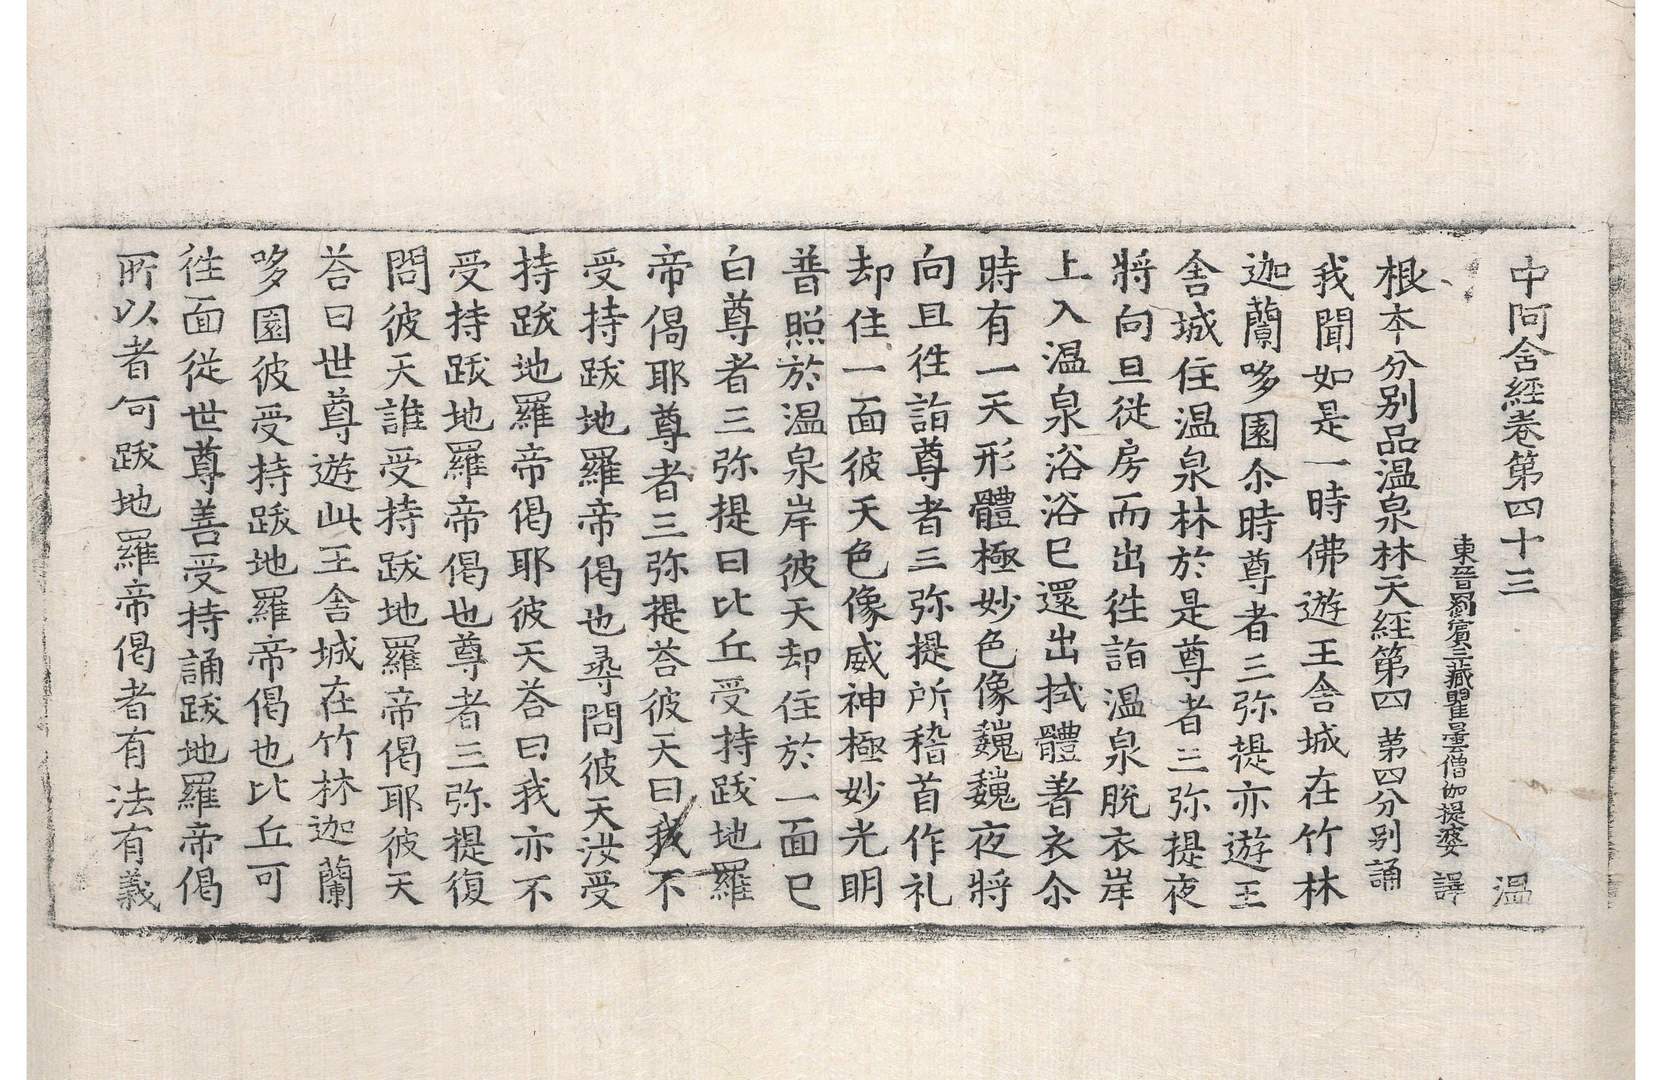 中阿含經卷第四十三 温
東晉罽賓三藏瞿曇僧伽提婆 譯
根本分別品温泉林天經第四 第四分別誦
我聞如是一時佛遊王舍城在竹林
迦蘭哆園尒時尊者三弥提亦遊王
舍城住温泉林於是尊者三弥提夜
將向旦從房而出往詣温泉脫衣岸
上入温泉浴浴已還出拭體著衣尒
時有一天形體極妙色像巍巍夜將
向旦往詣尊者三弥提所稽首作礼
却住一面彼天色像威神極妙光明
普照於温泉岸彼天却住於一面已
白尊者三弥提曰比丘受持跋地羅
帝偈耶尊者三弥提荅彼天曰我不
受持跋地羅帝偈也尋問彼天汝受
持跋地羅帝偈耶彼天荅曰我亦不
受持跋地羅帝偈也尊者三弥提復
問彼天誰受持跋地羅帝偈耶彼天
荅曰世尊遊此王舍城在竹林迦蘭
哆園彼受持跋地羅帝偈也比丘可
往面從世尊善受持誦跋地羅帝偈
所以者何跋地羅帝偈者有法有義